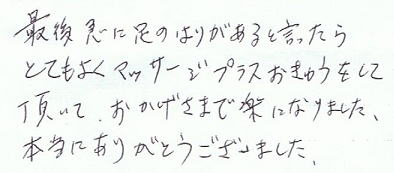 最後急に足のはりがあると言ったら
とてもよくマッサージプラスおきゅうをして
頂いて、おかげさまで楽になりました、
本当にありがとうございました、